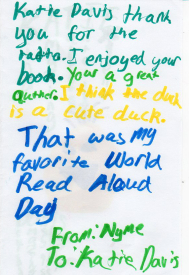 Katie Davis thank
you for the
ratto. I enjoyed your
book. Your a great
author. I think the duck
is a cute duck.
That was my
favorite World
Read Aloud
Day
From: Nyme
To: Katie Davis